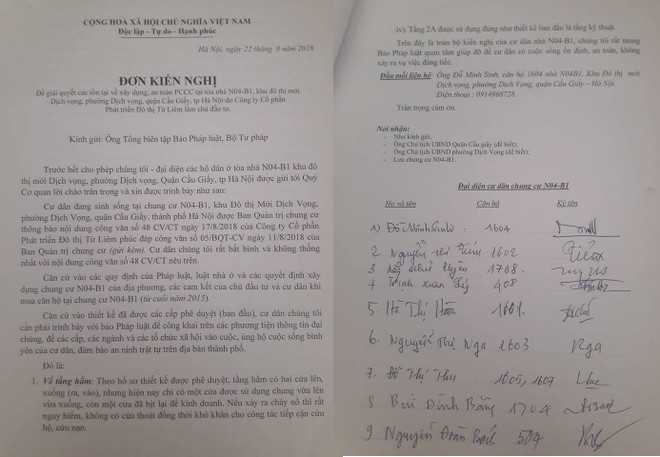 CỘNG HOÀ XÃ HỘI CHỦ NGHĨA VIỆT NAM
Độc lập - Tự do - Hạnh phúc
Hà Nội, ngày 22 tháng 8 năm 2018
ĐƠN KIẾN NGHỊ
Để giải quyết các tồn tại về xây dựng, an toàn PCCC tại tòa nhà N04-B1, khu đô thị mới
Dịch vọng, phường Dịch vọng, quận Cầu Giấy, tp Hà Nội do Công ty Cổ phần
Phát triển Đô thị Từ Liêm làm chủ đầu tư.
Kính gửi: Ông Tổng biên tập Báo Pháp luật, Bộ Tư pháp
Trước hết cho phép chúng tôi - đại diện các hộ dân ở tòa nhà N04-B1 khu đô
thị mới Dịch vọng, phường Dịch vọng, Quận Cầu Giấy, tp Hà Nội được gửi tới Quý
Cơ quan lời chào trân trọng và xin được trình bày như sau:
Cư dân đang sinh sống tại chung cư N04-B1, khu Đô thị Mới Dịch Vọng,
phường Dịch Vọng, quận Cầu Giấy, thành phố Hà Nội được Ban Quản trị chung cư
thông báo nội dung công văn số 48 CV/CT ngày 17/8/2018 của Công ty Cổ Phần
Phát triển Đô Thị Từ Liêm phúc đáp công văn số 05/BQT-CV ngày 11/8/2018 của
Ban Quản trị chung cư (gửi kèm). Cư dân chúng tôi rất bất bình và không thống
nhất với nội dung công văn số 48 CV/CT nêu trên.
Căn cứ vào các quy định của Pháp luật, luật nhà ở và các quyết định xây
dựng chung cư N04-B1 của địa phương, các cam kết của chủ đầu tư và cư dân khi
mua căn hộ tại chung cư N04-B1 (từ cuối năm 2015).
Căn cứ vào thiết kế đã được các cấp phê duyệt (ban đầu), cư dân chúng tôi
cần phải trình bày với báo Pháp luật để công khai trên các phương tiện thông tin đại
chúng, để các cấp, các ngành và các tổ chức xã hội vào cuộc, ủng hộ cuộc sống bình
yên của cư dân, đảm bảo an ninh trật tự trên địa bàn thành phố.
Đó là:
1. Về tầng hầm: Theo hồ sơ thiết kế được phê duyệt, tầng hầm có hai cửa lên,
xuống (ra, vào), nhưng hiện nay chỉ có một cửa được sử dụng chung vừa lên
vừa xuống, còn một cửa đã bịt lại để kinh doanh. Nếu xảy ra cháy nổ thì rất
nguy hiểm, không có cửa thoát đồng thời khó khăn cho công tác tiếp cận cứu
hộ, cứu nạn.
iv). Tầng 2A được sử dụng đúng như thiết kế ban đầu là tầng kỹ thuật
Trên đây là toàn bộ kiến nghị của cư dân nhà N04-B1, chúng tôi rất mong
Báo Pháp luật quan tâm giúp đỡ để cư dân có cuộc sống ổn định, an toàn, không
xảy ra vụ việc đáng tiếc.
Đầu mối liên hệ: Ông Đỗ Minh Sinh, căn hộ 1604 nhà N04B1, Khu Đô thị mới
Dịch vọng, phường Dịch Vọng, quận Cầu Giấy – Hà Nội.
Điện thoại : 0914968728.
Trân trọng cảm ơn.
Nơi nhận:
- Như kính gửi;
- Ông Chủ tịch UBND Quận Cầu giấy (để biết);
- Ông Chủ tịch UBND phường Dịch Vọng (để biết);
- Lưu chung cư N04-B1.
Đại diện cư dân chung cư N04-B1
Họ và tên Căn hộ Ký tên
1) Đỗ Minh Sinh 1604
2 Nguyễn Tiến 1602
3 1708
4 Trịnh Xuân 408
5 Hà Thị 1601
6. Nguyễn Thị Nga 1603 Nga
7. Đỗ Thị Thu 1605, 1607 Thu
8. Bùi Đình Bằng 1704
9. Nguyễn Đoàn Bách 504